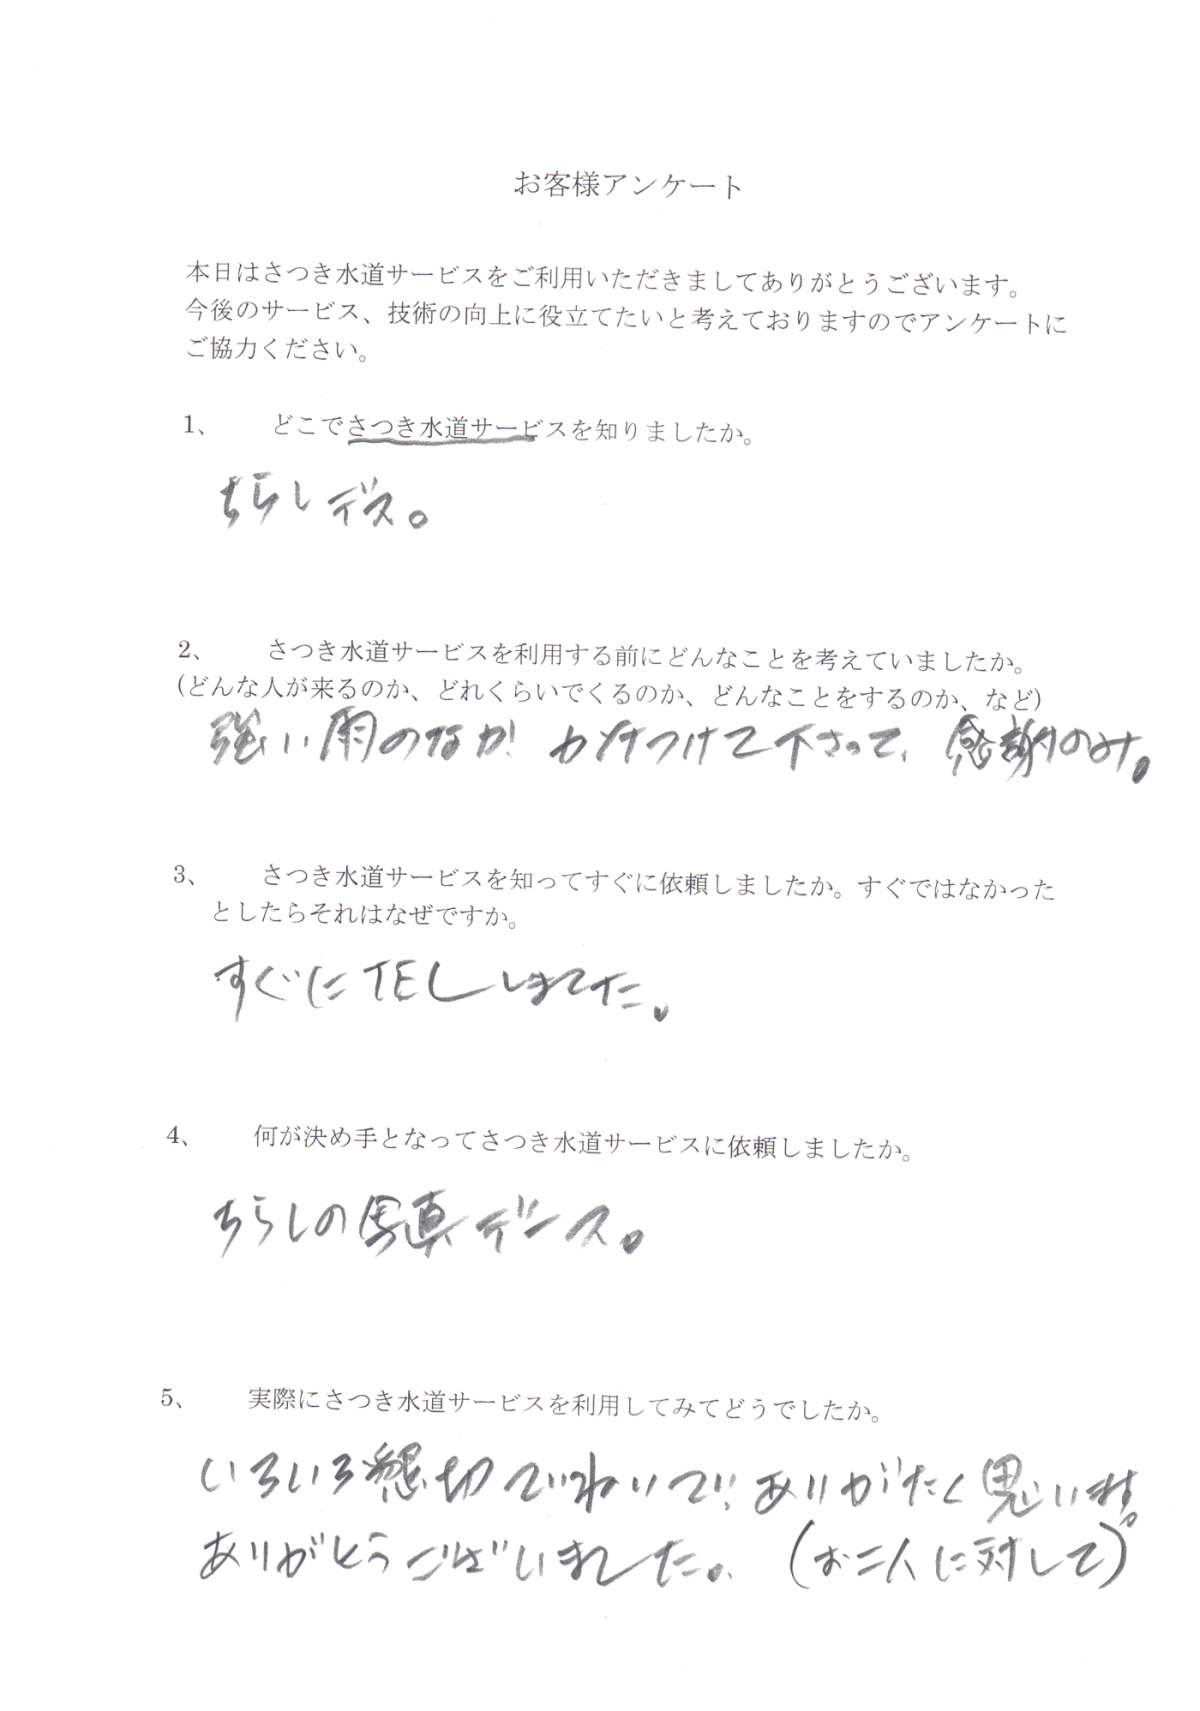 お客様アンケート
本日はさつき水道サービスをご利用いただきましてありがとうございます。
今後のサービス、技術の向上に役立てたいと考えておりますのでアンケートに
ご協力ください。
1、 どこでさつき水道サービスを知りましたか。
ちらしデス。
2、 さつき水道サービスを利用する前にどんなことを考えていましたか。
(どんな人が来るのか、どれくらいでくるのか、どんなことをするのか、など)
強い雨のなか! かけつけて下さって、感謝のみ。
3、 さつき水道サービスを知ってすぐに依頼しましたか。すぐではなかった
としたらそれはなぜですか。
すぐにTELしました。
4、 何が決め手となってさつき水道サービスに依頼しましたか。
ちらしの写真デース。
5、 実際にさつき水道サービスを利用してみてどうでしたか。
いろいろ懇切ていねいで!! ありがたく思います。
ありがとうございました。(お二人に対して)